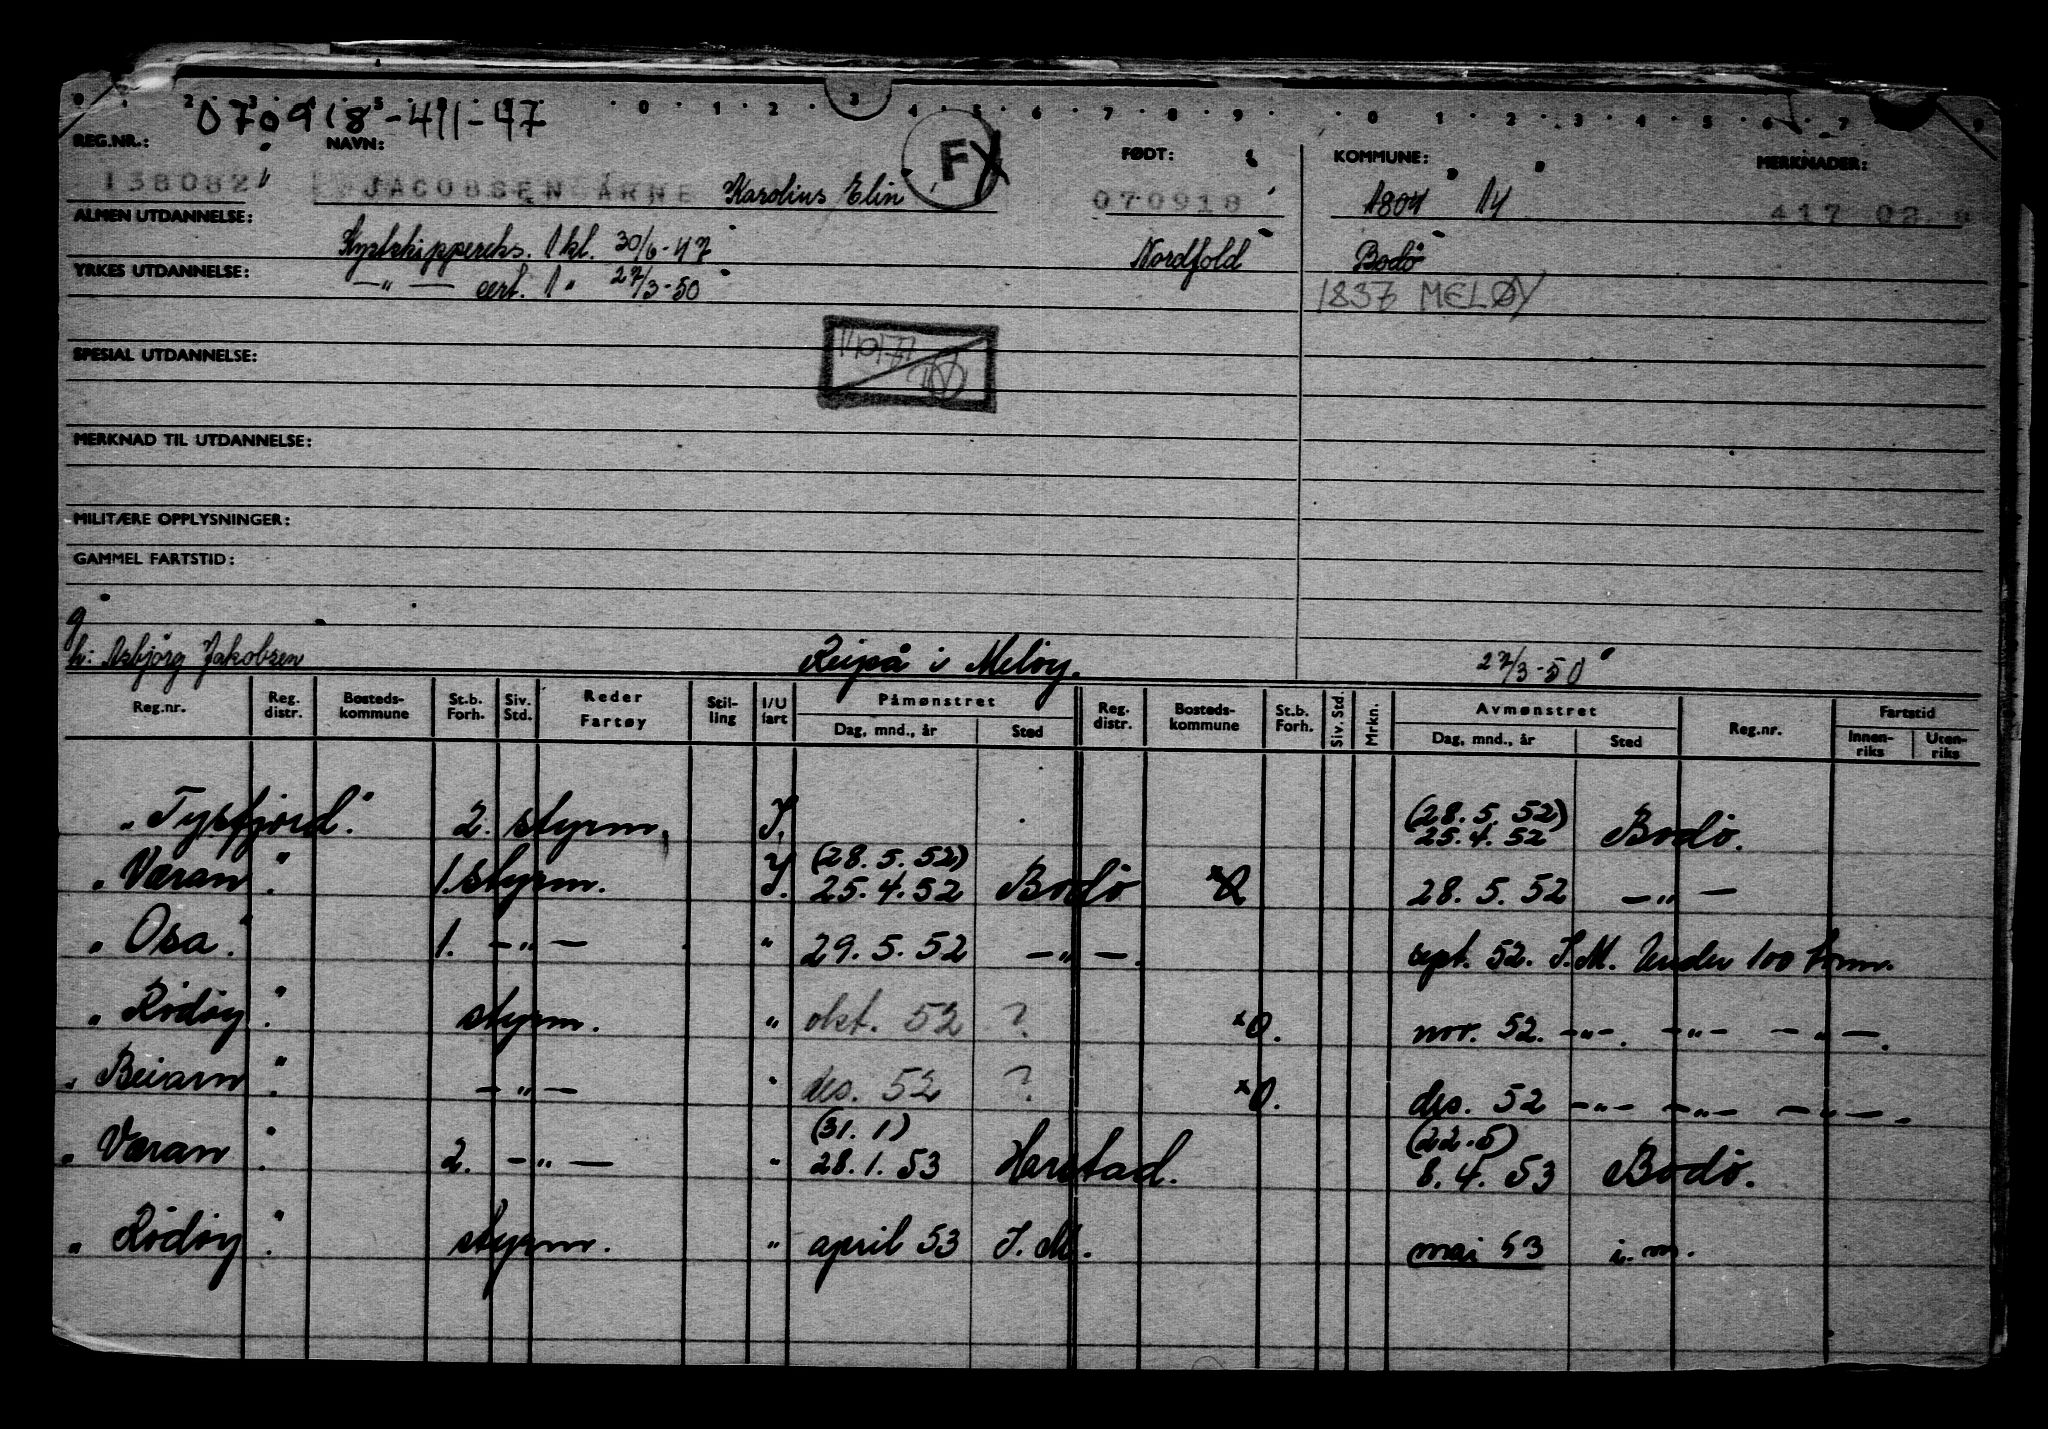 070918-411-47
REG.NR.: NAVN: FØDT: KOMMUNE: MERKNADER:
138082 JACOBSEN ARNE Karolius Elin F 070918 1804 14 417 02
ALMEN UTDANNELSE: Kystskippereks. 1 kl. 30/6-47 Nordfold Bodö
YRKES UTDANNELSE: —„— cert. 1 „ 27/3-50 1837 MELØY
SPESIAL UTDANNELSE:
MERKNAD TIL UTDANNELSE:
MILITÆRE OPPLYSNINGER:
GAMMEL FARTSTID:
g
h: Asbjörg Jakobsen Reipå i Melöy. 27/3-50
Reg.nr. Reg. distr. Bosteds-kommune St.b. Forh. Siv. Std. Reder Fartøy Stil-ling I/U fart Påmønstret Dag, mnd., år Sted Reg. distr. Bosteds-kommune St.b. Forh. Siv. Std. Mrkn. Avmønstret Dag, mnd., år Sted Reg.nr. Fartstid Innen-riks Uten-riks
(28.5.52)
„Tysfjord." 2. styrm. I. 25.4.52 Bodö.
(28.5.52)
„Væran". 1. styrm. I. 25.4.52 Bodö 28.5.52 —„—
„Osa." 1. —„— „ 29.5.52 —„—. sept. 52. I.M. Under 100 tonn.
„Rödöy". styrm. „ okt. 52 ? x0. nov. 52. —„—. —„— —„—.
„Beiarn". —„— „ des. 52 ? x0. des. 52 —„— —„— —„—.
(31.1) (22.5)
„Væran". 2. —„— „ 28.1.53 Harstad. 8.4.53 Bodö.
„Rödöy". styrm. „ april 53 I.M. mai 53 i.m.